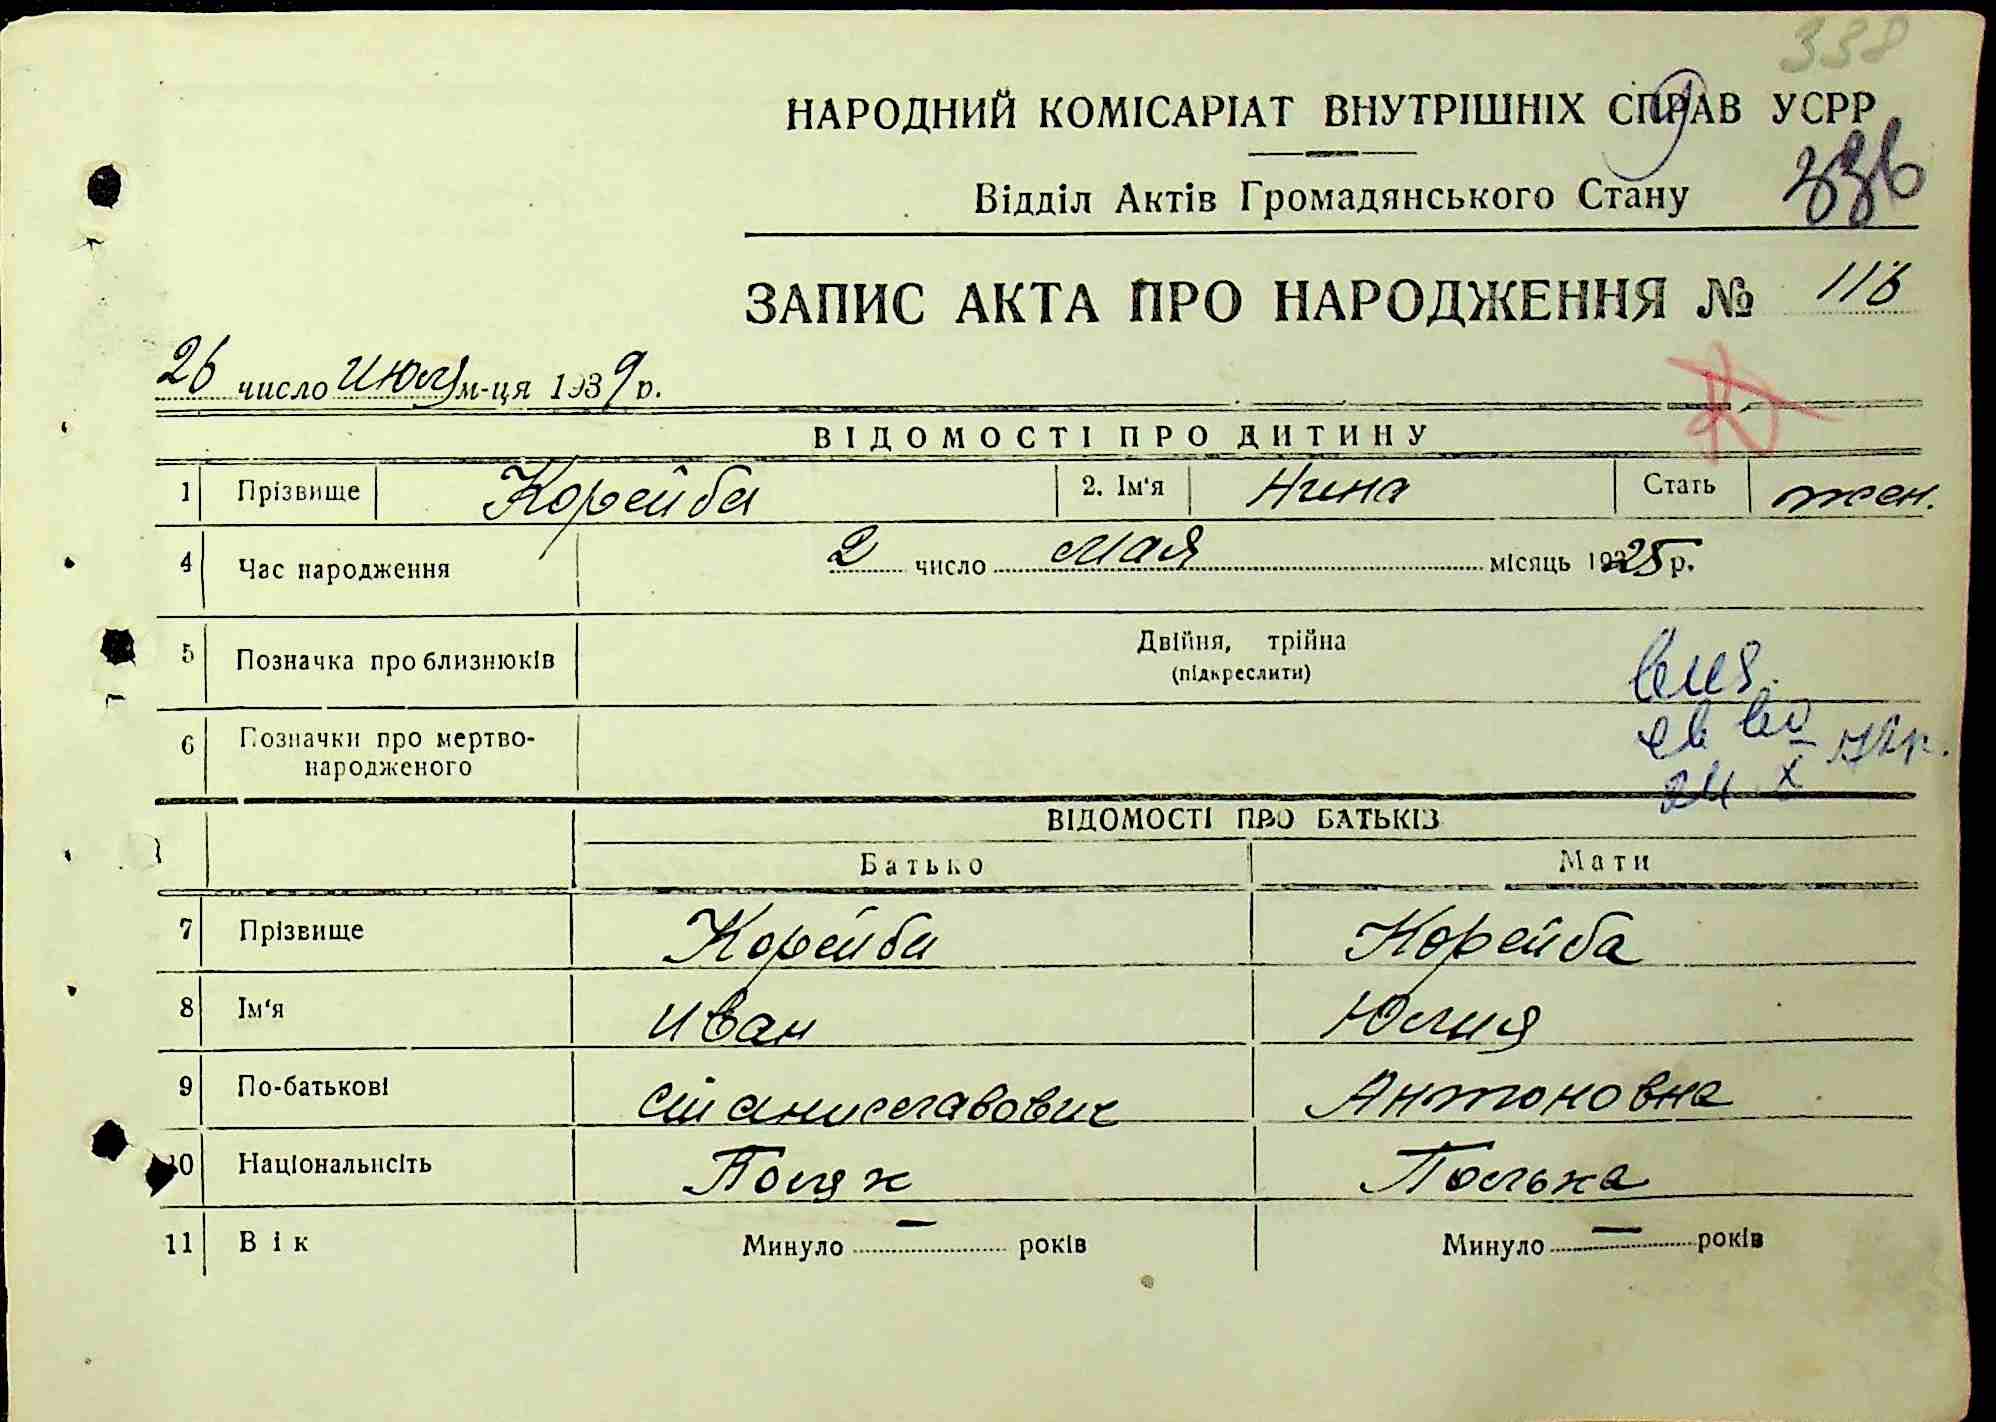 338
НАРОДНИЙ КОМІСАРІАТ ВНУТРІШНІХ СПРАВ УСРР
Відділ Актів Громадянського Стану
336
ЗАПИС АКТА ПРО НАРОДЖЕННЯ № 116
26 число Июля м-ця 1939 р.
ВІДОМОСТІ ПРО ДИТИНУ
1 Прізвище Корейба 2. Ім'я Нина Стать жен.
4 Час народження 2 число мая місяць 1925 р.
5 Позначка про близнюків Двійня, трійна
(підкреслити)
6 Позначки про мертво-
народженого
ВІДОМОСТІ ПРО БАТЬКІВ
Батько Мати
7 Прізвище Корейба Корейба
8 Ім'я Иван Юлия
9 По-батькові Станиславович Антоновна
10 Національність Поляк Полька
11 Вік Минуло — років Минуло — років